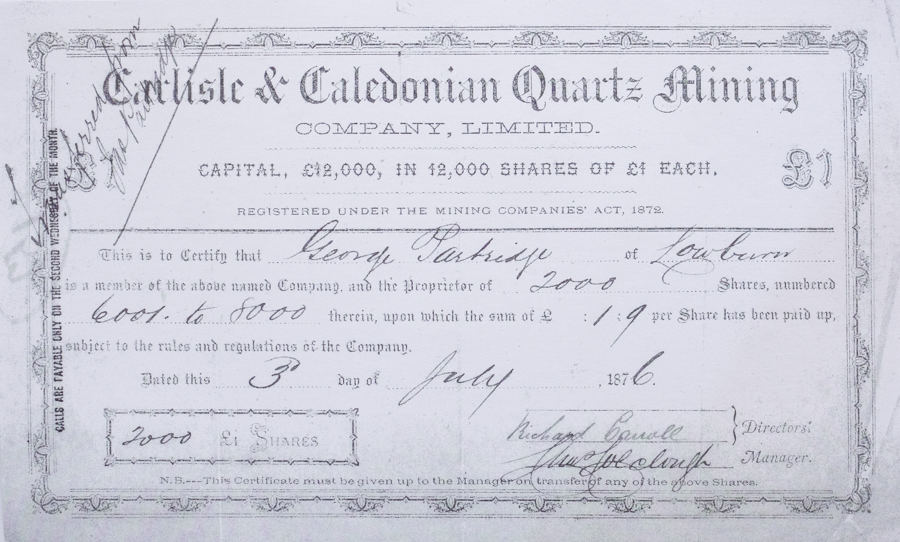 Transferred from
Carlisle & Caledonian Quartz Mining
COMPANY, LIMITED.
CAPITAL, £12,000, IN 12,000 SHARES OF £1 EACH.
£1
REGISTERED UNDER THE MINING COMPANIES' ACT, 1872.
CALLS ARE PAYABLE ONLY ON THE SECOND WEDNESDAY OF THE MONTH.
This is to Certify that George Partridge of Lowburn
is a member of the above named Company, and the Proprietor of 2000 Shares, numbered
6001. to 8000 therein, upon which the sum of £ : 1 : 9 per Share has been paid up,
subject to the rules and regulations of the Company.
Dated this 3d day of July, 1876.
2000 £1 SHARES
Richard Carroll
Directors.
Colclough
Manager.
N.B.---This Certificate must be given up to the Manager on transfer of any of the above Shares.